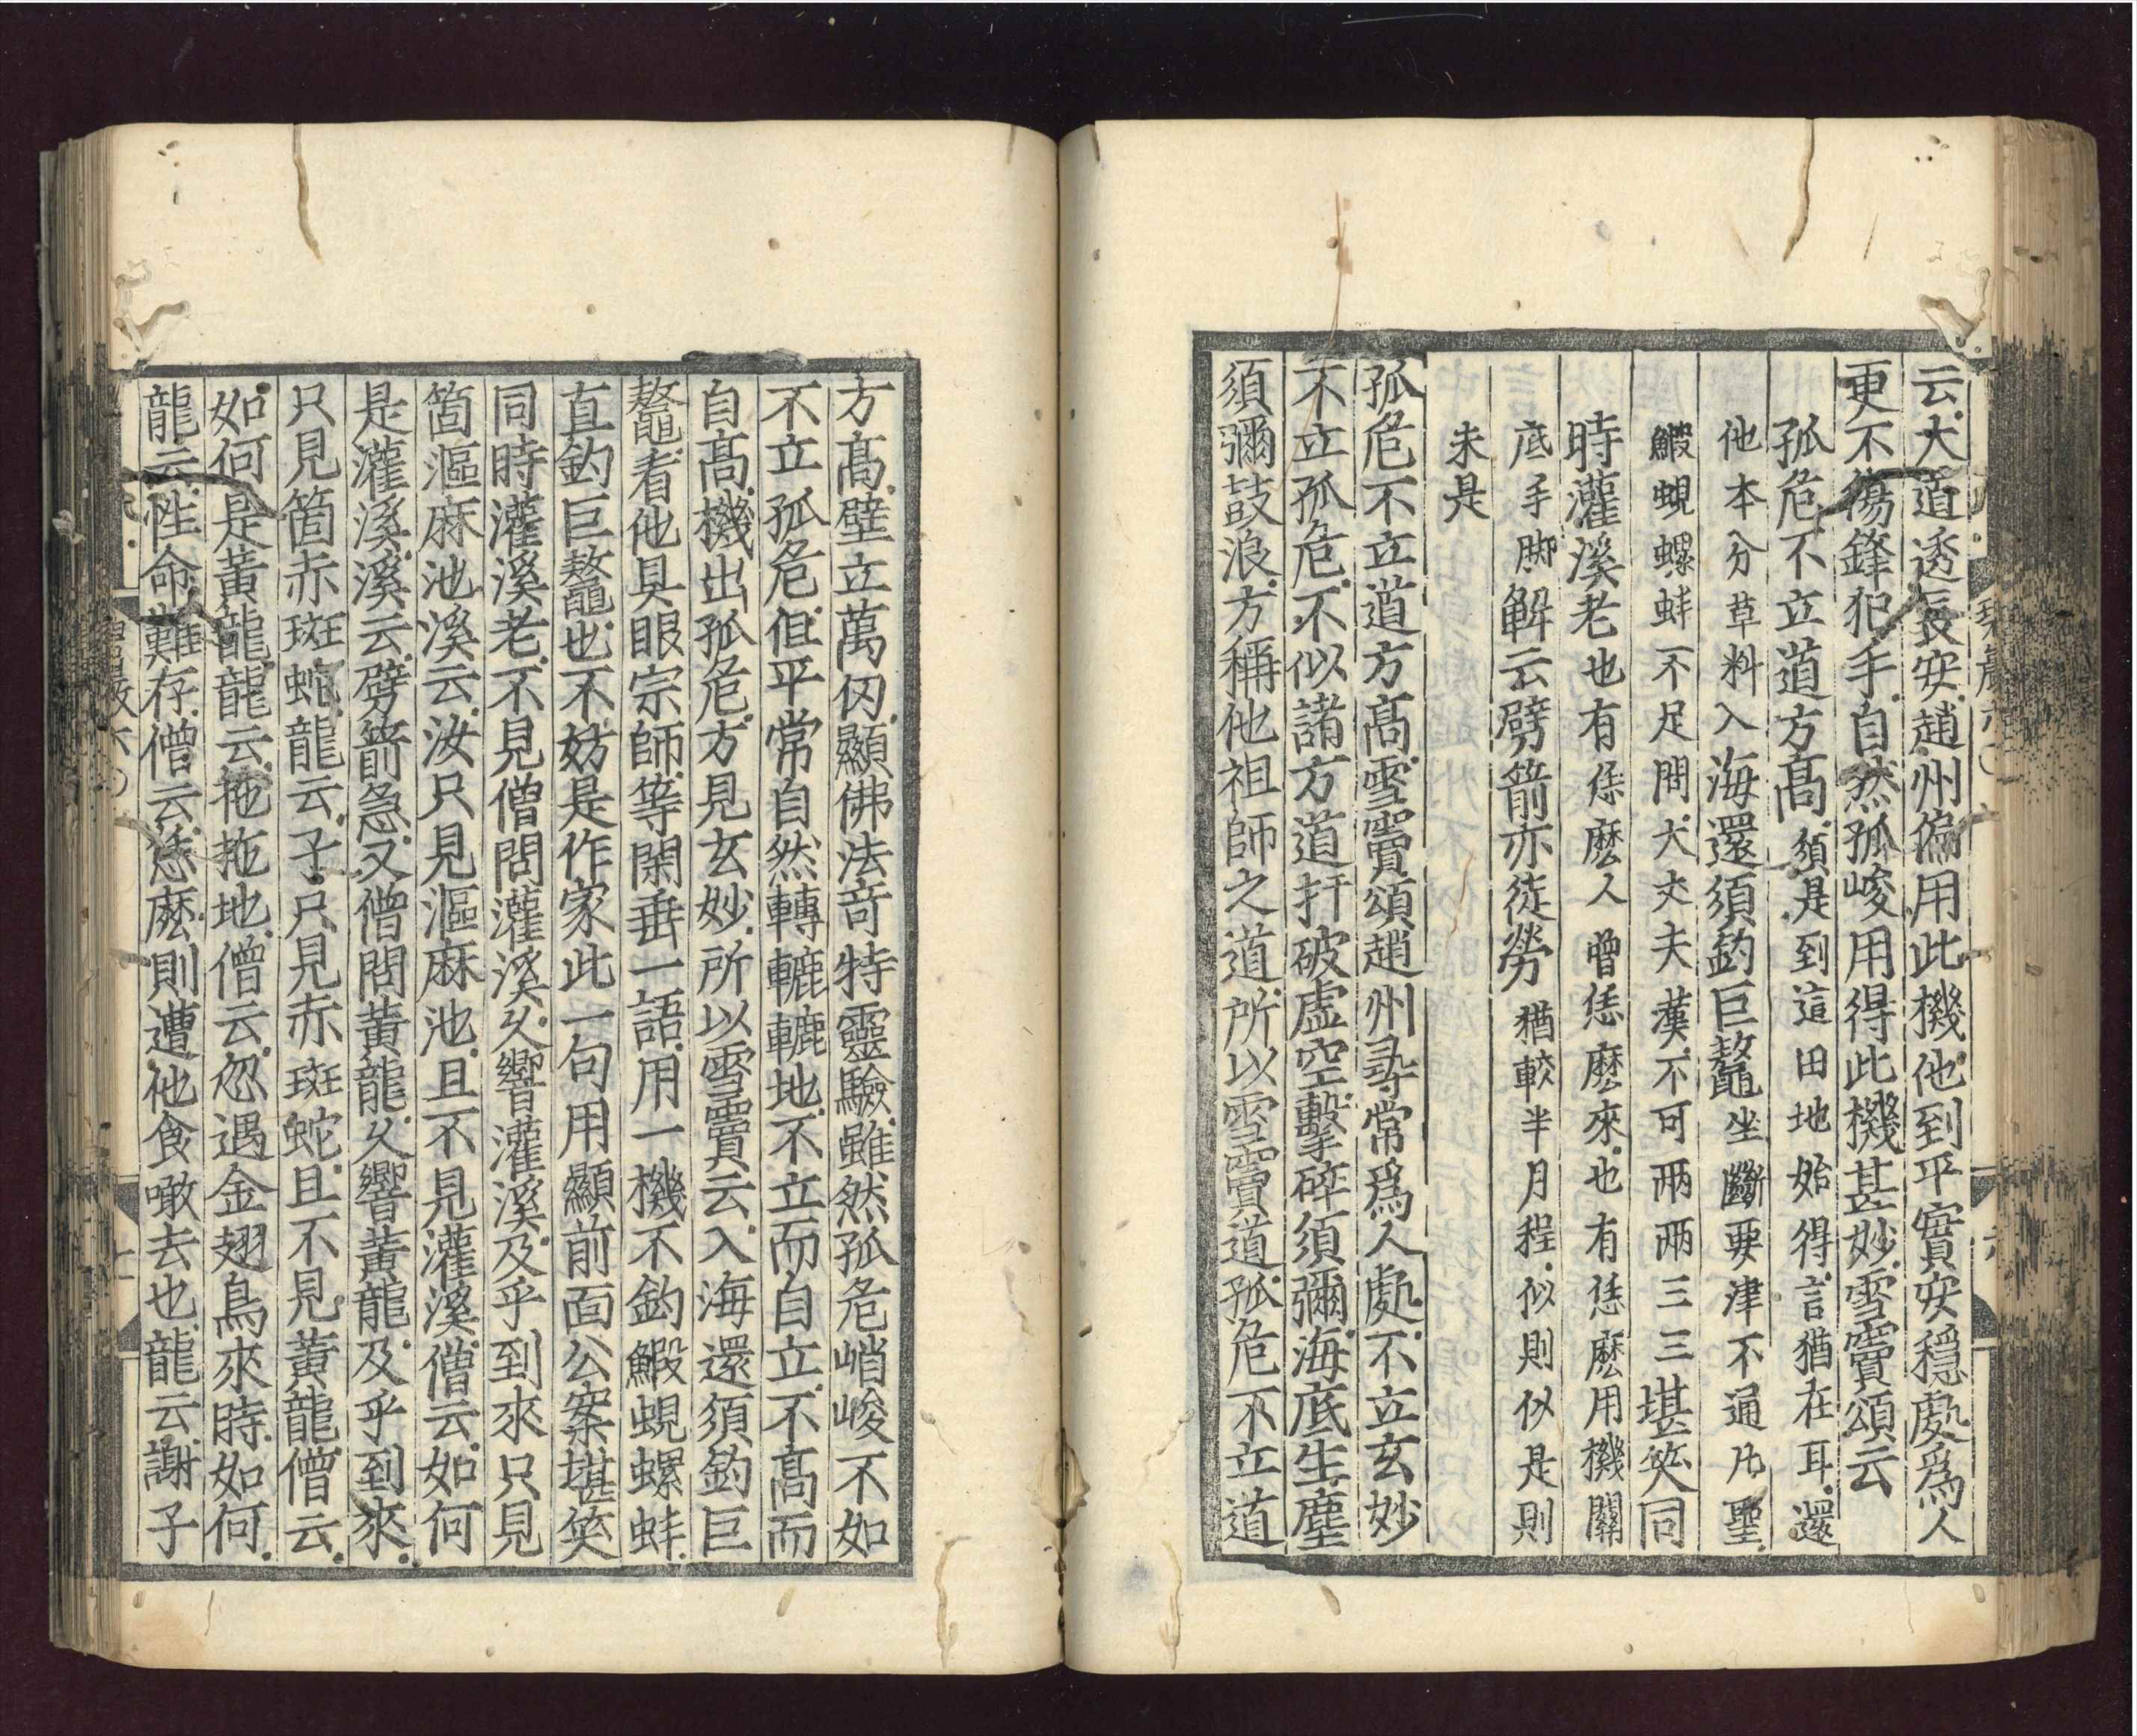 云大道透長安趙州偏用此機他到平實安穩處爲人
更不傷鋒犯手自然孤峻用得此機甚妙雪竇頌云
孤危不立道方髙須是到這田地始得言猶在耳還
他本分草料入海還須釣巨鼇坐斷要津不通凡聖
鰕蜆螺蚌不足問大丈夫漢不可兩兩三三堪笑同
時灌溪老也有恁麽人曾恁麽來也有恁麽用機關
底手脚解云劈箭亦徒勞猶較半月程似則似是則
未是
孤危不立道方髙雪竇頌趙州尋常爲人處不立玄妙
不立孤危不似諸方道扞破虚空擊碎須彌海底生塵
須彌鼓浪方稱他祖師之道所以雪竇道孤危不立道
方髙壁立萬仭顯佛法竒特靈驗雖然孤危峭峻不如
不立孤危但平常自然轉轆轆地不立而自立不髙而
自髙機出孤危方見玄妙所以雪竇云入海還須釣巨
鼇看他具眼宗師等閑垂一語用一機不釣鰕蜆螺蚌
直釣巨鼇也不妨是作家此一句用顯前面公案堪笑
同時灌溪老不見僧問灌溪久響灌溪及乎到來只見
箇漚麻池溪云汝只見漚麻池且不見灌溪僧云如何
是灌溪溪云劈箭急又僧問黃龍久響黃龍及乎到來
只見箇赤斑蛇龍云子只見赤斑蛇且不見黃龍僧云
如何是黃龍龍云拖拖地僧云忽遇金翅鳥來時如何
龍云性命難存僧云恁麽則遭他食噉去也龍云謝子